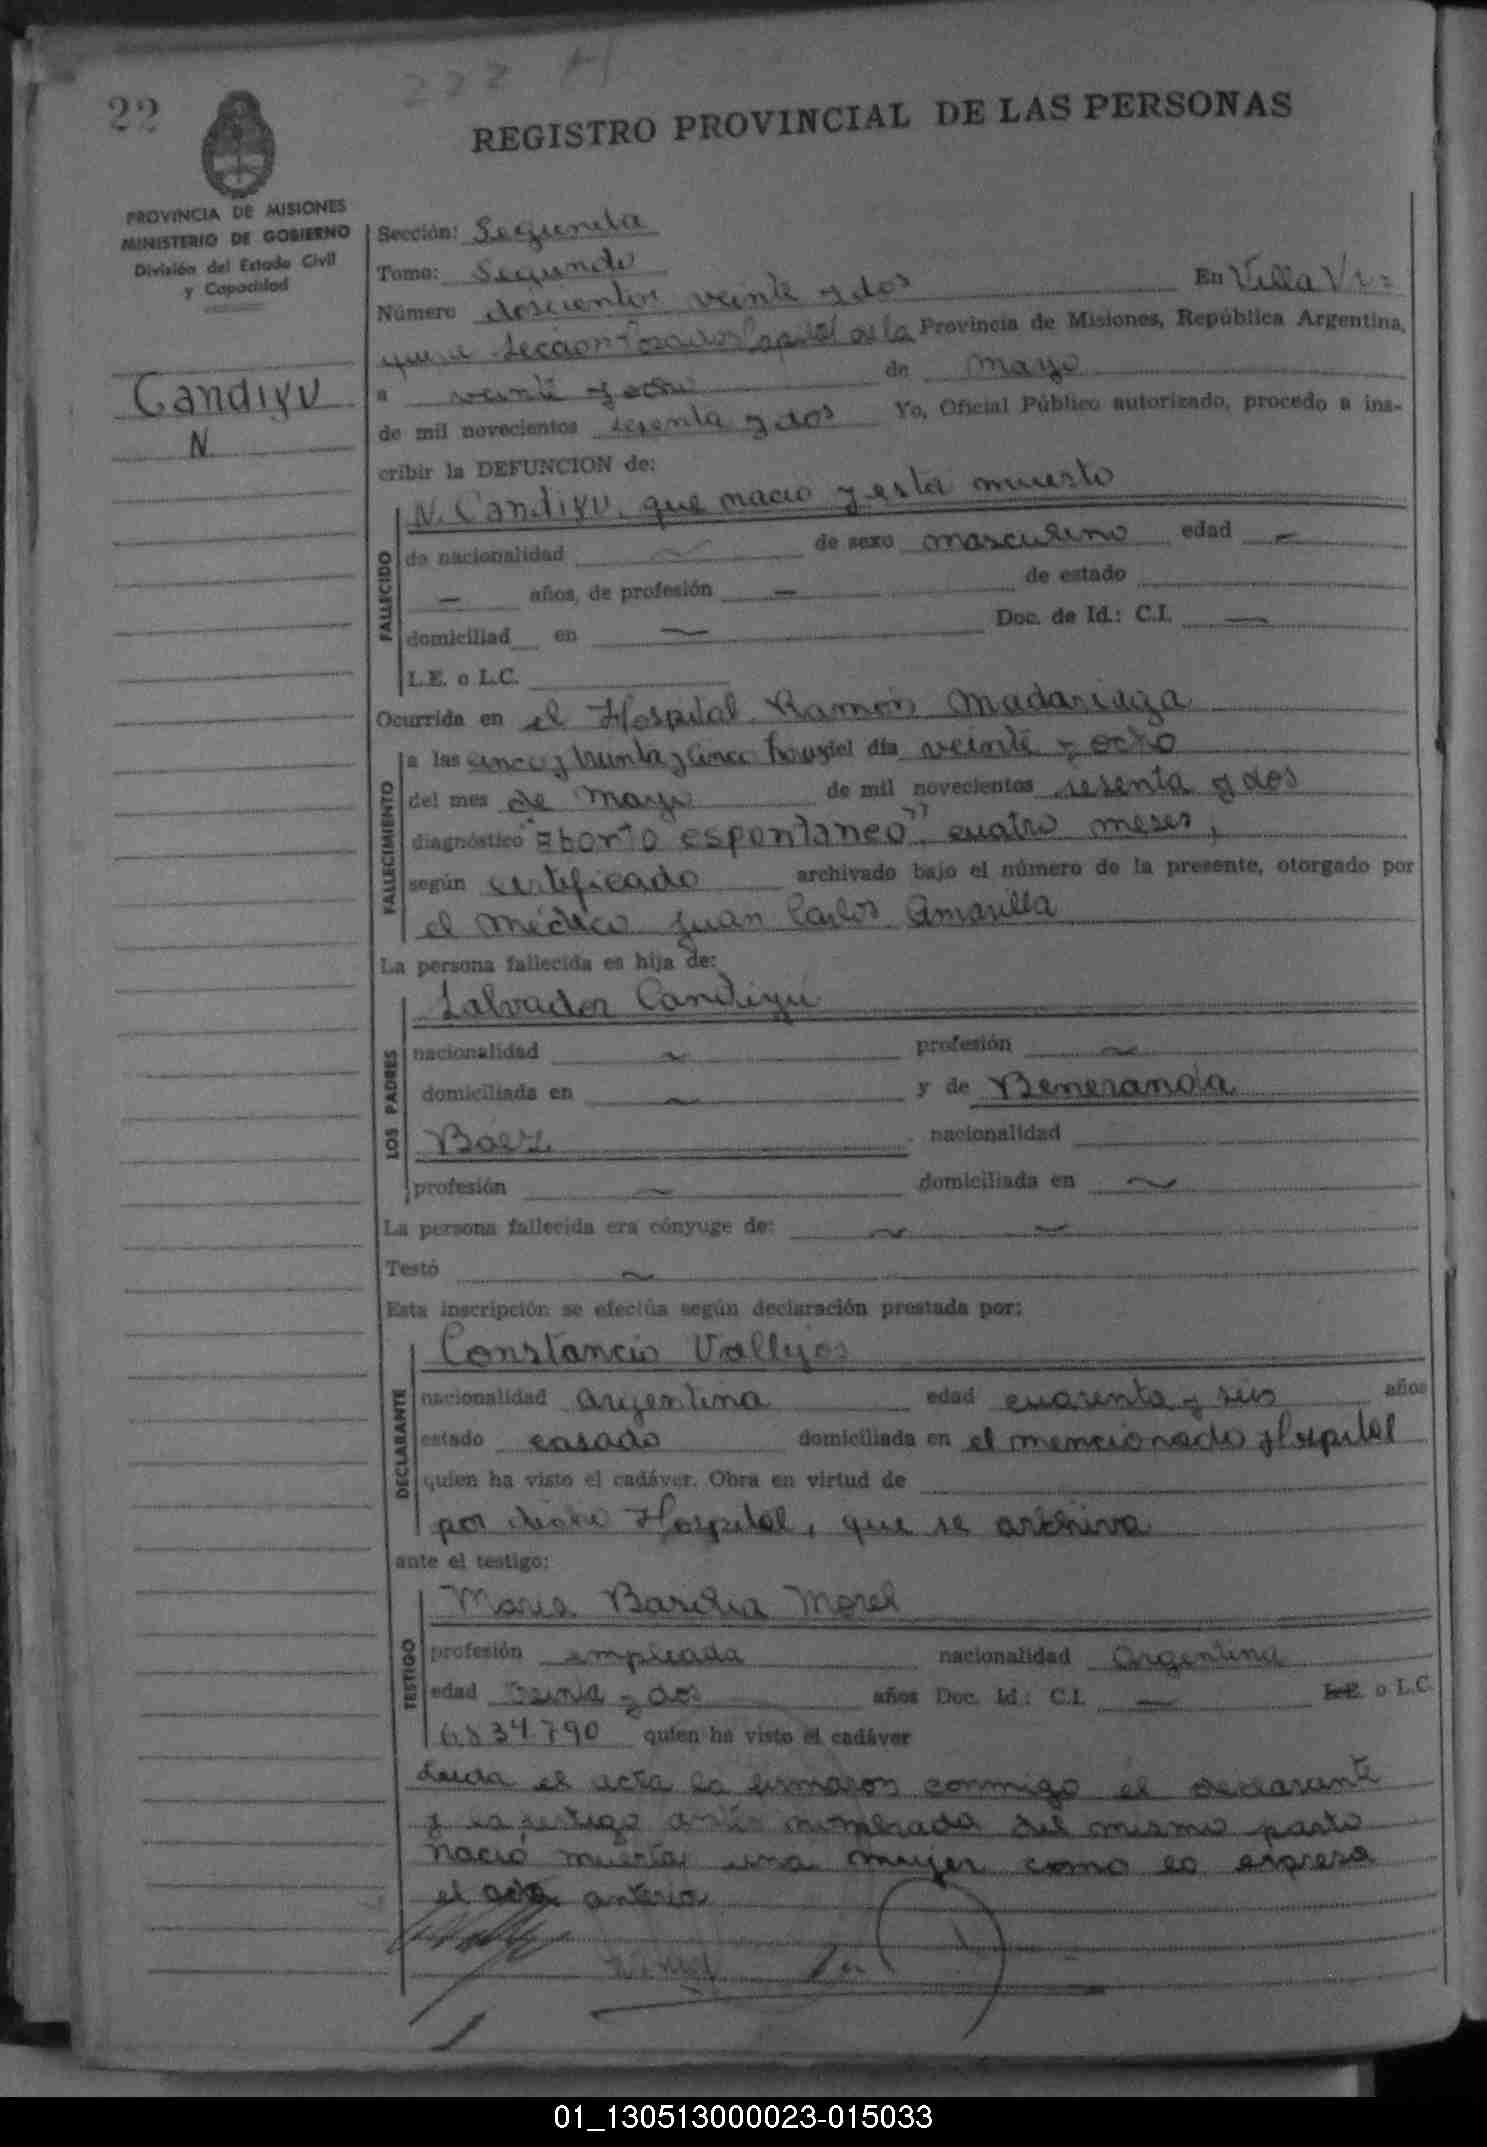 222 H
22
REGISTRO PROVINCIAL DE LAS PERSONAS
PROVINCIA DE MISIONES
MINISTERIO DE GOBIERNO
División del Estado Civil
y Capacidad
Candiyu
N.
Sección: Segunda
Tomo: Segundo
Número doscientos veinte y dos En Villa Ur=
quiza Sección Posadas Capital de la Provincia de Misiones, República Argentina,
a veinte y ocho de mayo
de mil novecientos sesenta y dos Yo, Oficial Público autorizado, procedo a ins-
cribir la DEFUNCION de:
N. Candiyu, que nacio y esta muerto
FALLECIDO
de nacionalidad — de sexo masculino edad —
— años, de profesión — de estado
domiciliad en — Doc. de Id.: C.I. —
L.E. o L.C.
Ocurrida en el Hospital Ramón Madariaga
FALLECIMIENTO
a las cinco y treinta y cinco horas del día veinte y ocho
del mes de mayo de mil novecientos sesenta y dos
diagnóstico "aborto espontaneo" cuatro meses,
según certificado archivado bajo el número de la presente, otorgado por
el médico Juan Carlos Amarilla
La persona fallecida es hija de:
LOS PADRES
Salvador Candiyu
nacionalidad — profesión —
domiciliada en — y de Beneranda
Baez nacionalidad
profesión — domiciliada en —
La persona fallecida era cónyuge de: — —
Testó —
Esta inscripción se efectúa según declaración prestada por:
DECLARANTE
Constancio Vallejos
nacionalidad argentina edad cuarenta y seis años
estado casado domiciliada en el mencionado Hospital
quien ha visto el cadáver. Obra en virtud de
por dicho Hospital, que se archiva
ante el testigo:
TESTIGO
Maria Basilia Morel
profesión empleada nacionalidad Argentina
edad treinta y dos años Doc. Id.: C.I. — L.E. o L.C.
6834790 quien ha visto el cadáver
Leida el acta la firmaron conmigo el declarante
y la testigo antes nombrada del mismo parto
nació muerta una mujer como lo expresa
el acta anterior
01_130513000023-015033